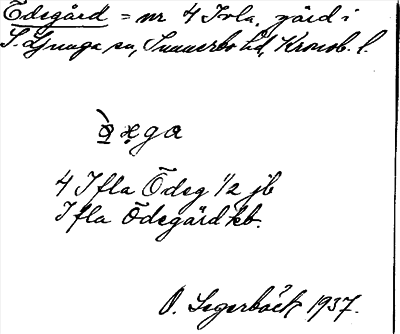 Ödegård = nr 4 Ivla, gård i
S. Ljunga sn, Sunnerbo hd, Kronob. l.
ø̨ ęga
4 Ifla Ödeg 1/2 jb
Ifla Ödegård kb.
O. Segerbäck 1937.